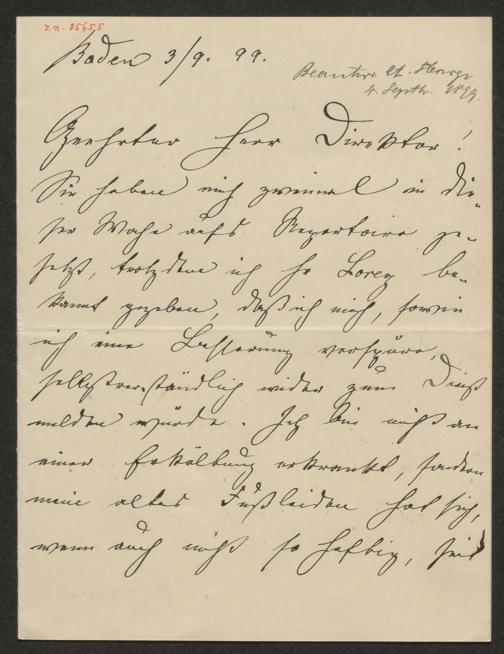 J.N. 85655
Baden 3/9. 99.
Beantw. lt.
4. Septb. 1899.
Geehrter Herr Direktor!
Sie haben mich zweimal in die-
ser Woche aufs Repertoire ge-
setzt, trotzdem ich H Lorey be-
kannt gegeben, daß ich mich, sowie
ich eine Besserung verspüre,
selbstverständlich wieder zum Dienst
melden würde. Ich bin nicht an
einer Erkältung erkrankt, sondern
mein altes Fußleiden hat sich,
wenn auch nicht so heftig, seit